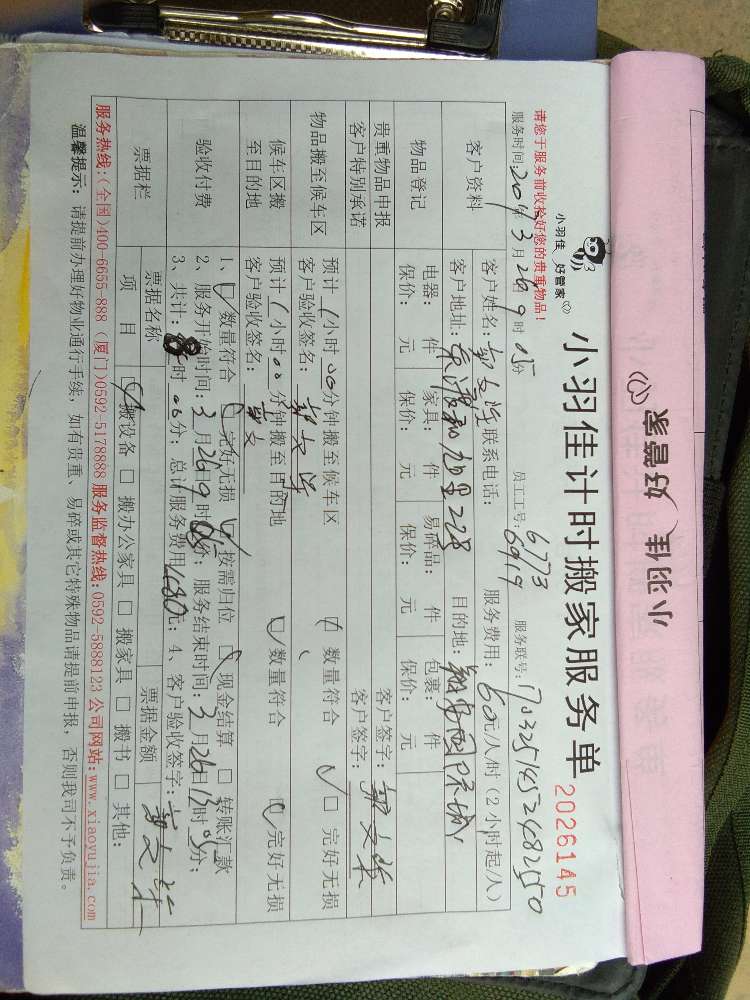 小羽佳 好管家
小羽佳 好管家
小羽佳计时搬家服务单
2026145
请您于服务前收拾好您的贵重物品!
员工工号: 6773
6919
服务联号:
服务时间: 年3月26 9时05分
客户资料
客户姓名: 联系电话: 服务费用: 60元/人/时(2小时起/人)
客户地址: 目的地:
物品登记
电器: 件 家具: 件 易碎品: 件 包裹: 件
保价: 元 保价: 元 保价: 元 保价: 元
贵重物品申报 客户签字:
客户特别承诺 客户签字:
物品搬至候车区
预计 1小时00分钟搬至候车区 数量符合 完好无损
客户验收签名:
候车区搬
至目的地
预计 1小时00分钟搬至目的地 数量符合 完好无损
客户验收签名:
验收付费
1、 数量符合 完好无损 按需归位 现金结算 转账汇款
2、服务开始时间: 3月26日9时05分; 服务结束时间: 3月26日 时 分;
3、共计: 8时00分; 总计服务费用480元; 4、客户验收签字:
票据栏
票据名称 票据金额
项目 搬设备 搬办公家具 搬家具 搬书 其他:
服务热线:(全国)400-6655-888 (厦门)0592-5178888 服务监督热线:0592-5888123 公司网站:www.xiaoyujia.com
温馨提示: 请提前办理好物业通行手续, 如有贵重、易碎或其它特殊物品请提前申报, 否则我司不予负责。